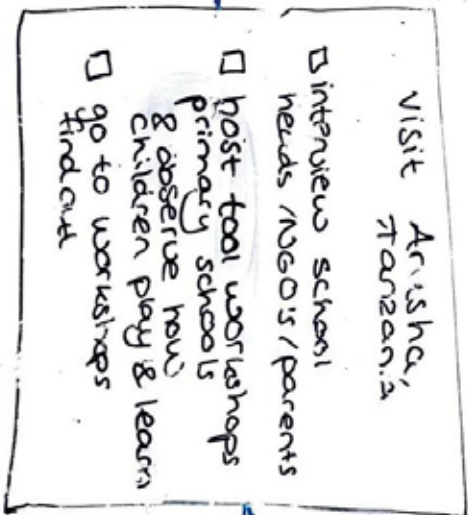 visit Arusha,
Tanzania
☐ interview school
heads /NGO's /parents
☐ host tool workshops
primary schools
& observe how
children play & learn
☐ go to workshops
find out